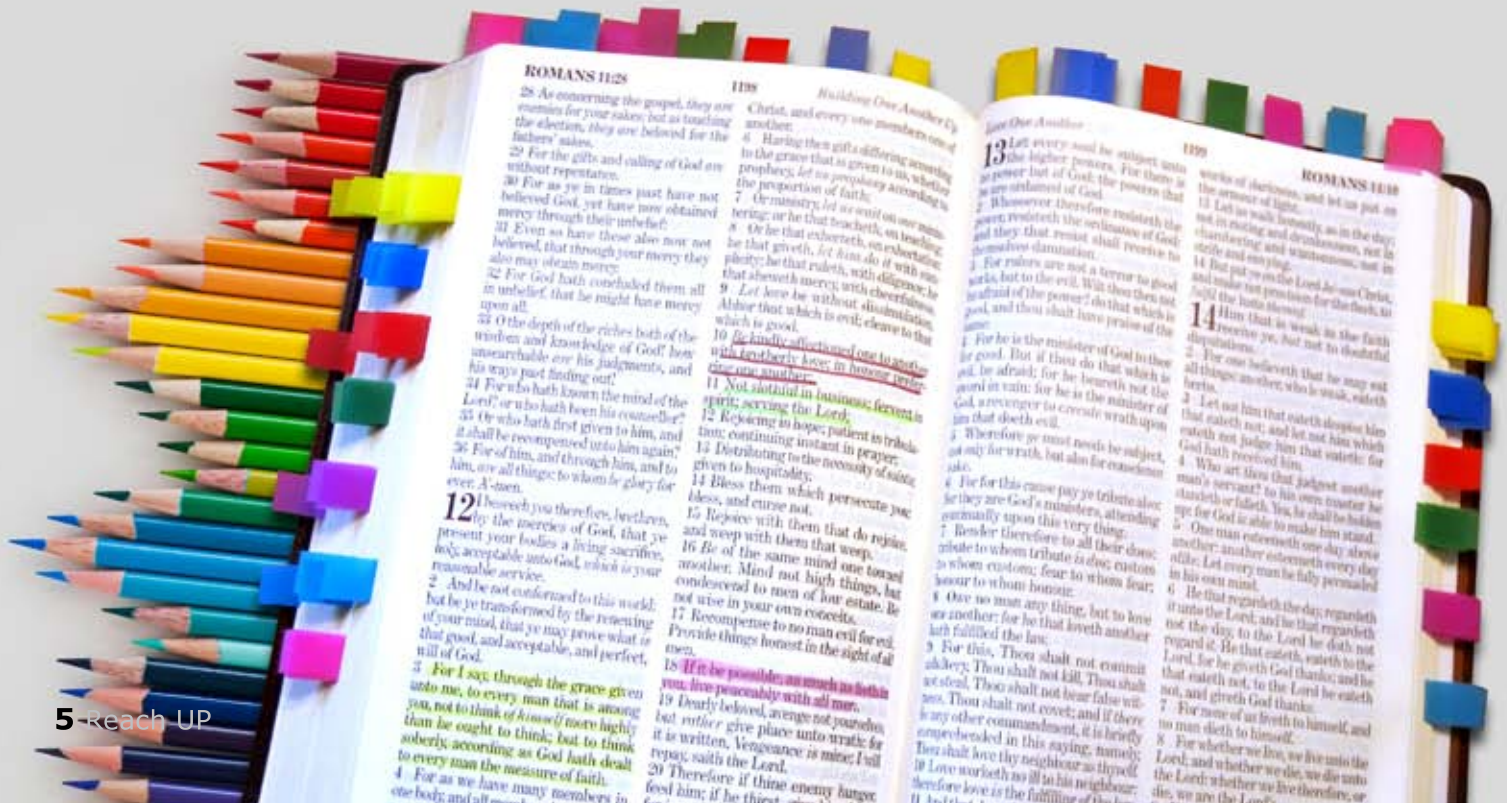 ROMANS 11:28
1198
Building One Another Up
28 As concerning the gospel, they are
enemies for your sakes: but as touching
the election, they are beloved for the
fathers' sakes.
29 For the gifts and calling of God are
without repentance.
30 For as ye in times past have not
believed God, yet have now obtained
mercy through their unbelief:
31 Even so have these also now not
believed, that through your mercy they
also may obtain mercy.
32 For God hath concluded them all
in unbelief, that he might have mercy
upon all.
33 O the depth of the riches both of the
wisdom and knowledge of God! how
unsearchable are his judgments, and
his ways past finding out!
34 For who hath known the mind of the
Lord? or who hath been his counseller?
35 Or who hath first given to him, and
it shall be recompensed unto him again?
36 For of him, and through him, and to
him, are all things: to whom be glory for
ever. A'-men.
12 I beseech you therefore, brethren,
by the mercies of God, that ye
present your bodies a living sacrifice,
holy, acceptable unto God, which is your
reasonable service.
2 And be not conformed to this world:
but be ye transformed by the renewing
of your mind, that ye may prove what is
that good, and acceptable, and perfect,
will of God.
3 For I say, through the grace given
unto me, to every man that is among
you, not to think of himself more highly
than he ought to think; but to think
soberly, according as God hath dealt
to every man the measure of faith.
4 For as we have many members in
one body, and all
Christ, and every one members one of
another.
6 Having then gifts differing according
to the grace that is given to us, whether
prophecy, let us prophesy according to
the proportion of faith;
7 Or ministry, let us wait on our minis-
tering: or he that teacheth, on teaching;
8 Or he that exhorteth, on exhortation:
he that giveth, let him do it with sim-
plicity; he that ruleth, with diligence; he
that sheweth mercy, with cheerfulness.
9 Let love be without dissimulation.
Abhor that which is evil; cleave to that
which is good.
10 Be kindly affectioned one to another
with brotherly love; in honour prefer-
ring one another;
11 Not slothful in business; fervent in
spirit; serving the Lord;
12 Rejoicing in hope; patient in tribula-
tion; continuing instant in prayer;
13 Distributing to the necessity of saints;
given to hospitality.
14 Bless them which persecute you:
bless, and curse not.
15 Rejoice with them that do rejoice,
and weep with them that weep.
16 Be of the same mind one toward
another. Mind not high things, but
condescend to men of low estate. Be
not wise in your own conceits.
17 Recompense to no man evil for evil.
Provide things honest in the sight of all
men.
18 If it be possible, as much as lieth in
you, live peaceably with all men.
19 Dearly beloved, avenge not yourselves,
but rather give place unto wrath: for
it is written, Vengeance is mine; I will
repay, saith the Lord.
20 Therefore if thine enemy hunger,
feed him; if he thirst,
Love One Another
1199
ROMANS 14:10
13 Let every soul be subject unto
the higher powers. For there is
no power but of God: the powers that
be are ordained of God.
Whosoever therefore resisteth the
power, resisteth the ordinance of God:
and they that resist shall receive to
themselves damnation.
For rulers are not a terror to good
works, but to the evil. Wilt thou then not
be afraid of the power? do that which is
good, and thou shalt have praise of the
same:
For he is the minister of God to thee
for good. But if thou do that which is
evil, be afraid; for he beareth not the
sword in vain: for he is the minister of
God, a revenger to execute wrath upon
him that doeth evil.
Wherefore ye must needs be subject,
not only for wrath, but also for conscience
sake.
For for this cause pay ye tribute also:
for they are God's ministers, attending
continually upon this very thing.
7 Render therefore to all their dues:
tribute to whom tribute is due; custom
to whom custom; fear to whom fear;
honour to whom honour.
8 Owe no man any thing, but to love
one another: for he that loveth another
hath fulfilled the law.
9 For this, Thou shalt not commit
adultery, Thou shalt not kill, Thou shalt
not steal, Thou shalt not bear false wit-
ness, Thou shalt not covet; and if there
be any other commandment, it is briefly
comprehended in this saying, namely,
Thou shalt love thy neighbour as thyself.
10 Love worketh no ill to his neighbour:
therefore love is the fulfilling of the law.
works of darkness, and let us put on
the armour of light.
13 Let us walk honestly, as in the day;
not in rioting and drunkenness, not in
chambering and wantonness, not in
strife and envying.
14 But put ye on the Lord Je-sus Christ,
and make not provision for the flesh, to
fulfil the lusts thereof.
14 Him that is weak in the faith
receive ye, but not to doubtful
disputations.
2 For one believeth that he may eat
all things: another, who is weak, eateth
herbs.
3 Let not him that eateth despise him
that eateth not; and let not him which
eateth not judge him that eateth: for
God hath received him.
4 Who art thou that judgest another
man's servant? to his own master he
standeth or falleth. Yea, he shall be holden
up: for God is able to make him stand.
5 One man esteemeth one day above
another: another esteemeth every day
alike. Let every man be fully persuaded
in his own mind.
6 He that regardeth the day, regardeth
it unto the Lord; and he that regardeth
not the day, to the Lord he doth not
regard it. He that eateth, eateth to the
Lord, for he giveth God thanks; and he
that eateth not, to the Lord he eateth
not, and giveth God thanks.
7 For none of us liveth to himself, and
no man dieth to himself.
For whether we live, we live unto the
Lord; and whether we die, we die unto
the Lord: whether we live therefore, or
die, we are the Lord's.
5 Reach UP